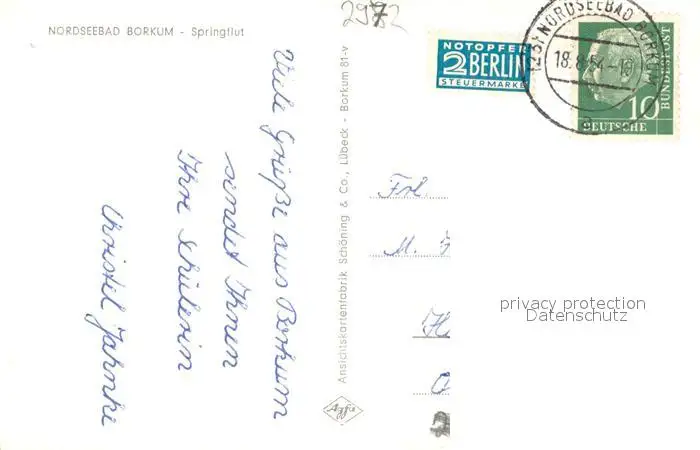 NORDSEEBAD BORKUM - Springflut
Viele Grüße aus Borkum
sendet Ihnen
Ihre Schülerin
Christel Jahnke
Ansichtskartenfabrik Schöning & Co., Lübeck - Borkum 81-v
Agfa
2982
NOTOPFER
2 BERLIN
STEUERMARKE
NORDSEEBAD BORKUM
18.8.54-18
a
10
DEUTSCHE
BUNDESPOST
Frl.
M.
privacy protection
Datenschutz